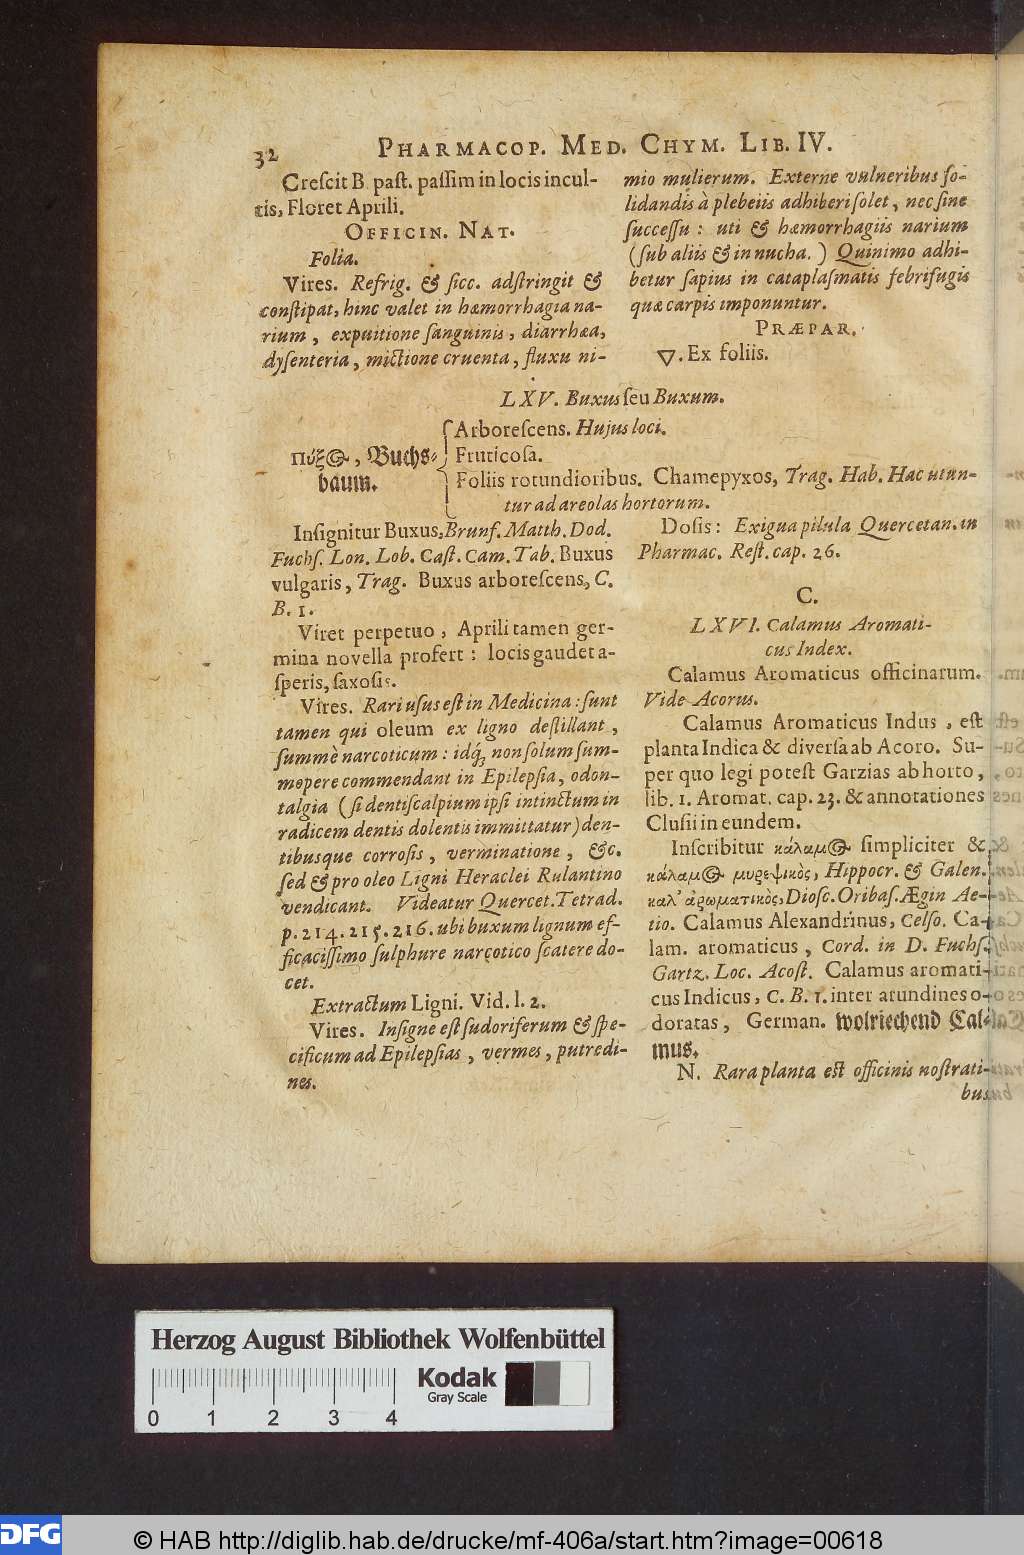 32
PHARMACOP. MED. CHYM. LIB. IV.
Creſcit B. paſt. paſſim in locis incul-
tis, Floret Aprili.
OFFICIN. NAT.
Folia.
Vires. Refrig. & ſicc. adſtringit &
conſtipat, hinc valet in hæmorrhagia na-
rium, expuitione ſanguinis, diarrhæa,
dyſenteria, mictione cruenta, fluxu ni-
mio mulierum. Externe vulneribus ſo-
lidandis à plebeiis adhiberi ſolet, nec ſine
ſucceſſu: uti & hæmorrhagiis narium
(ſub aliis & in nucha.) Quinimo adhi-
betur ſæpius in cataplaſmatis febrifugis
quæ carpis imponuntur.
PRÆPAR.
▽. Ex foliis.
LXV. Buxus ſeu Buxum.
Πύξ@, Buchs-
baum.
Arboreſcens. Hujus loci.
Fruticoſa.
Foliis rotundioribus. Chamepyxos, Trag. Hab. Hac utun-
tur ad areolas hortorum.
Inſignitur Buxus, Brunf. Matth. Dod.
Fuchſ. Lon. Lob. Caſt. Cam. Tab. Buxus
vulgaris, Trag. Buxus arboreſcens, C.
B. 1.
Viret perpetuo, Aprili tamen ger-
mina novella profert: locis gaudet a-
ſperis, ſaxoſis.
Vires. Rari uſus eſt in Medicina: ſunt
tamen qui oleum ex ligno deſtillant,
ſummè narcoticum: idq́; non ſolum ſum-
mopere commendant in Epilepſia, odon-
talgia (ſi dentiſcalpium ipſi intinctum in
radicem dentis dolentis immittatur) den-
tibusque corroſis, verminatione, &c.
ſed & pro oleo Ligni Heraclei Rulantino
vendicant. Videatur Quercet. Tetrad.
p. 214. 215. 216. ubi buxum lignum ef-
ficaciſſimo ſulphure narcotico ſcatere do-
cet.
Extractum Ligni. Vid. l. 2.
Vires. Inſigne eſt ſudoriferum & ſpe-
cificum ad Epilepſias, vermes, putredi-
nes.
Doſis: Exigua pilula Quercetan. in
Pharmac. Reſt. cap. 26.
C.
LXVI. Calamus Aromati-
cus Index.
Calamus Aromaticus officinarum.
Vide Acorus.
Calamus Aromaticus Indus, eſt
planta Indica & diverſa ab Acoro. Su-
per quo legi poteſt Garzias ab horto,
lib. 1. Aromat. cap. 23. & annotationes
Cluſii in eundem.
Inſcribitur κάλαμ@ ſimpliciter &
κάλαμ@ μυρεψικὸς, Hippocr. & Galen.
καλ' ἀρωματικὸς, Dioſc. Oribaſ. Ægin Ae-
tio. Calamus Alexandrinus, Celſo. Ca-
lam. aromaticus, Cord. in D. Fuchſ.
Gartz. Loc. Acoſt. Calamus aromati-
cus Indicus, C. B. 1. inter arundines o-
doratas, German. wolriechend Cal-
mus.
N. Rara planta eſt officinis noſtrati-
bus
Herzog August Bibliothek Wolfenbüttel
Kodak
Gray Scale
0 1 2 3 4
DFG
© HAB http://diglib.hab.de/drucke/mf-406a/start.htm?image=00618